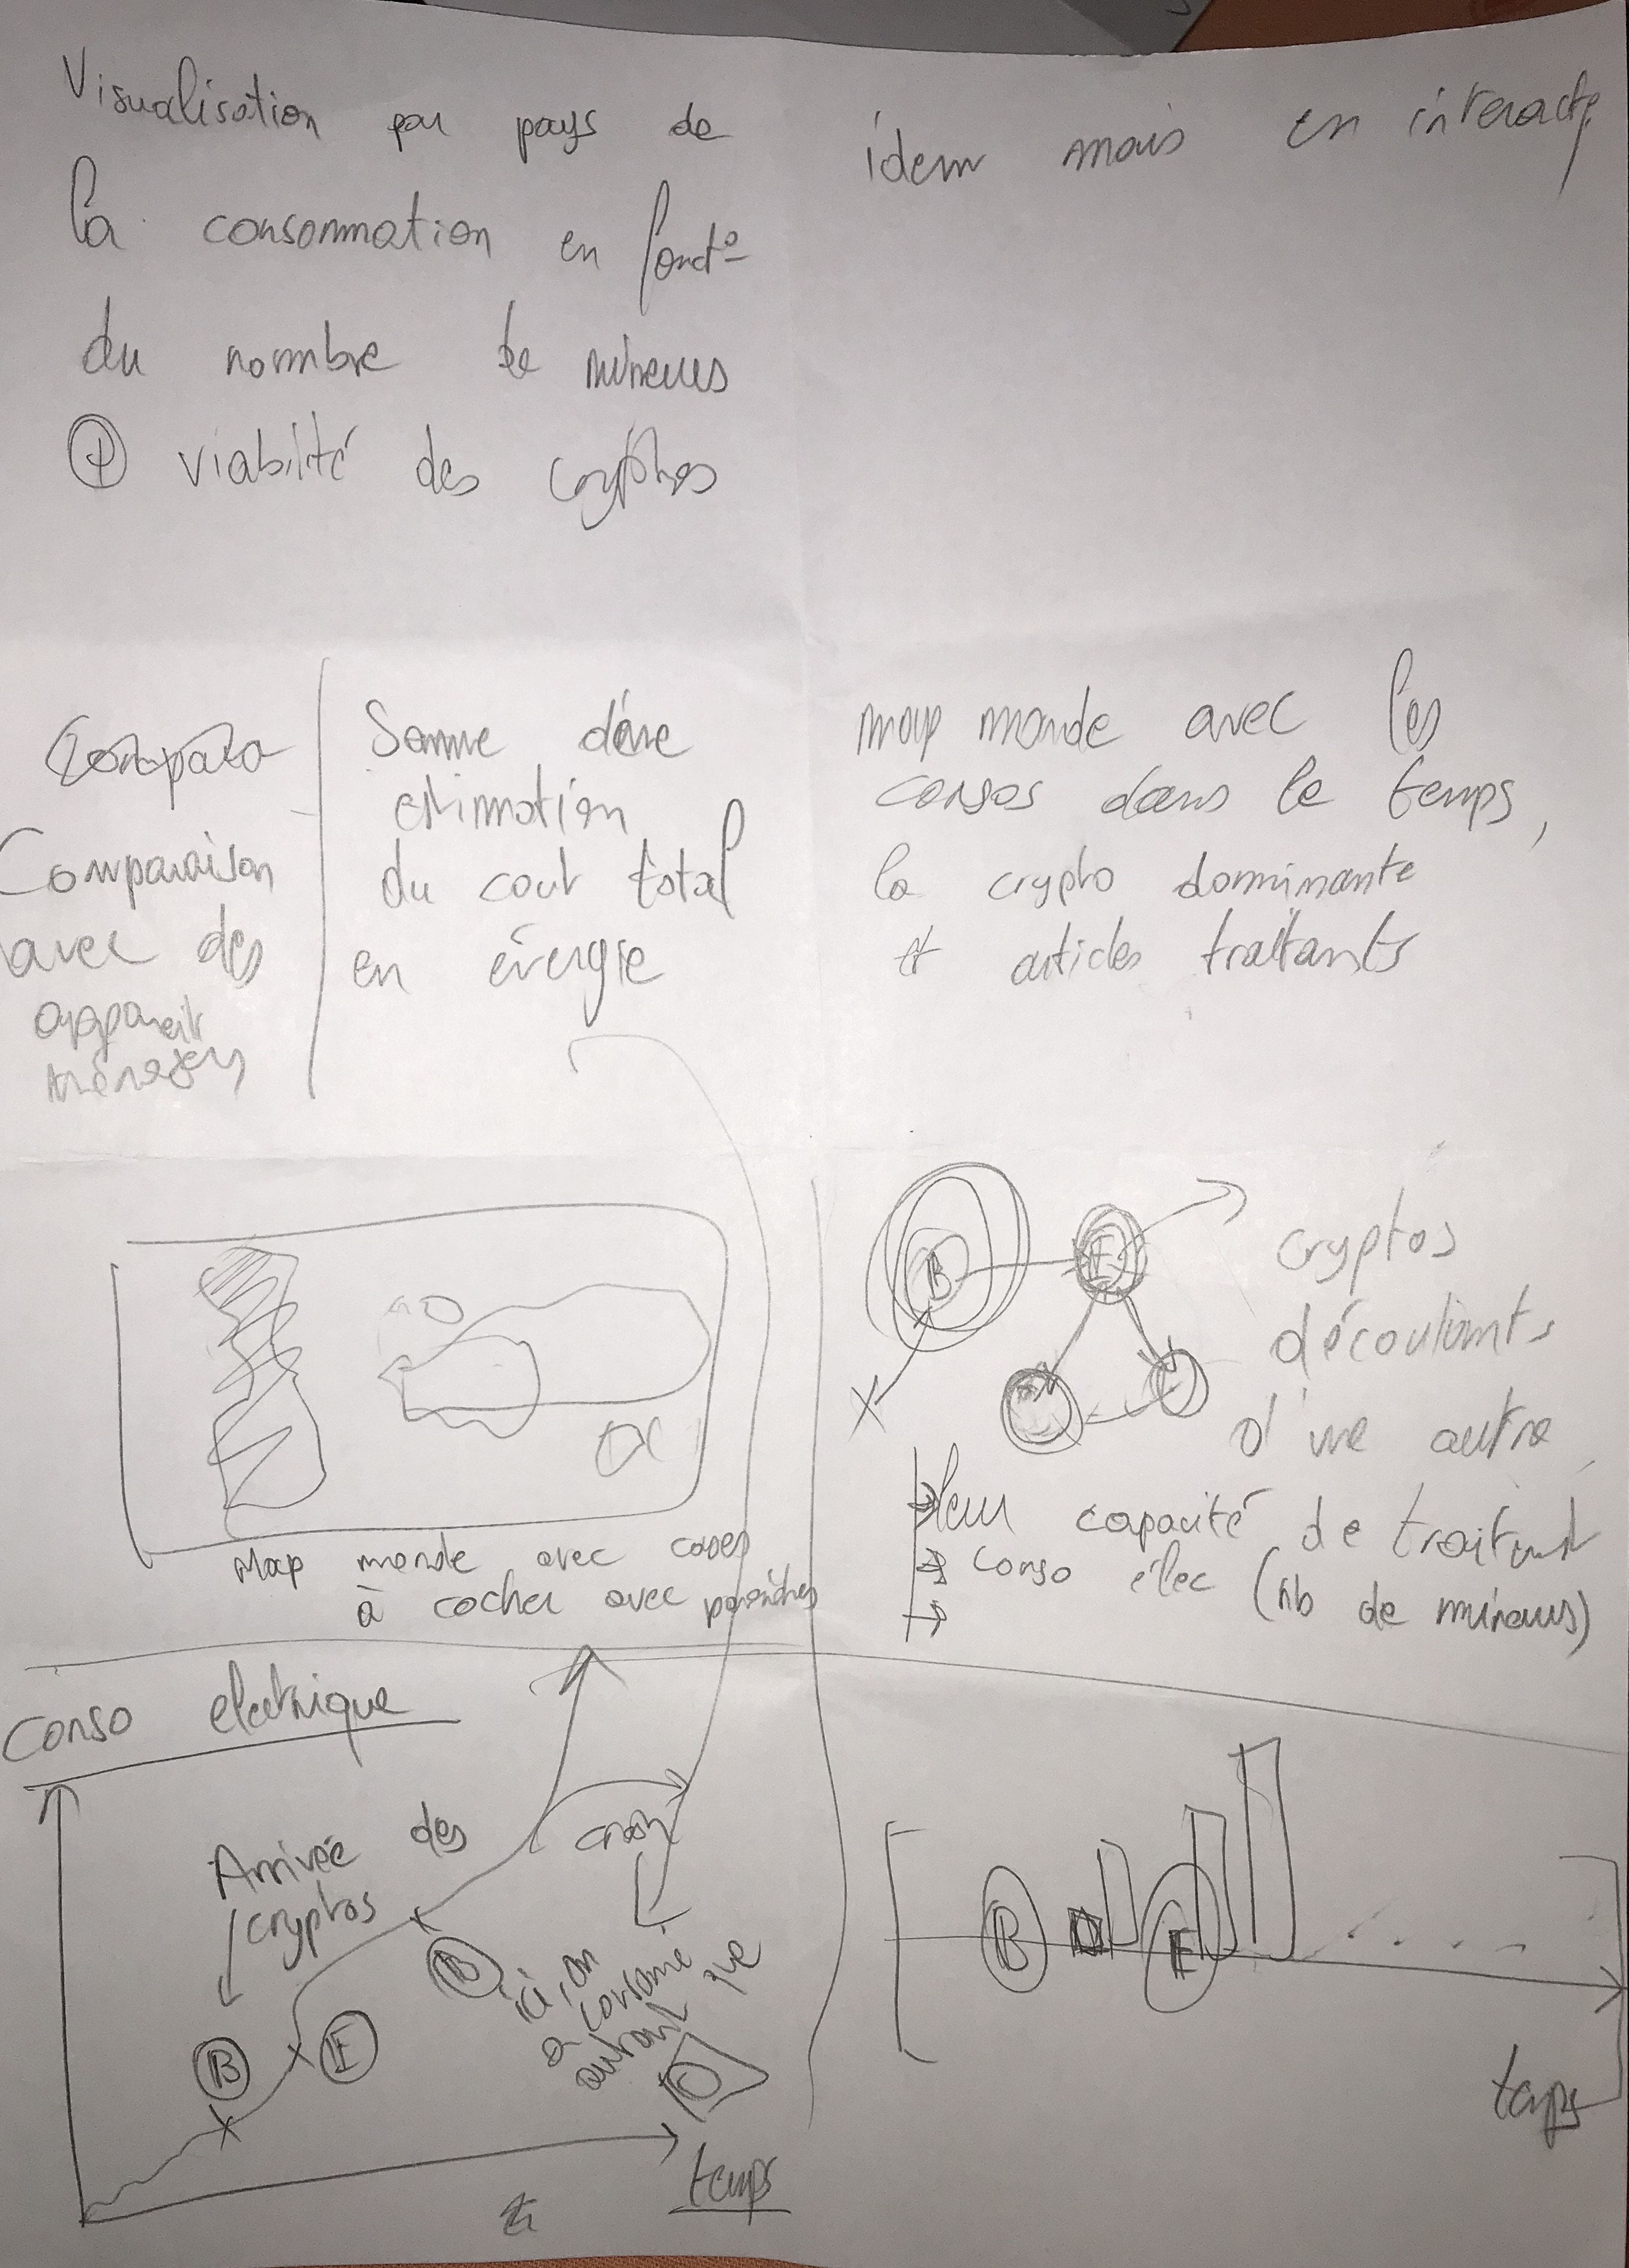 Visualisation par pays de
la consommation en fonct°
du nombre de mineurs
⊕ viabilité des cryptos
idem mais en interactif
Compara
Comparaison
avec des
appareils
ménagers
Somme d'une
estimation
du cout total
en énergie
map monde avec les
consos dans le temps,
la crypto dominante
et articles traitants
Map monde avec cases
à cocher avec
B
E
cryptos
découlants
d'une autre
leur capacité de
→ conso élec (nb de mineurs)
→
Conso electrique
Arrivée des
cryptos
B
E
B
crash
ici, on
a consommé
autant que
temps
B
E
temps